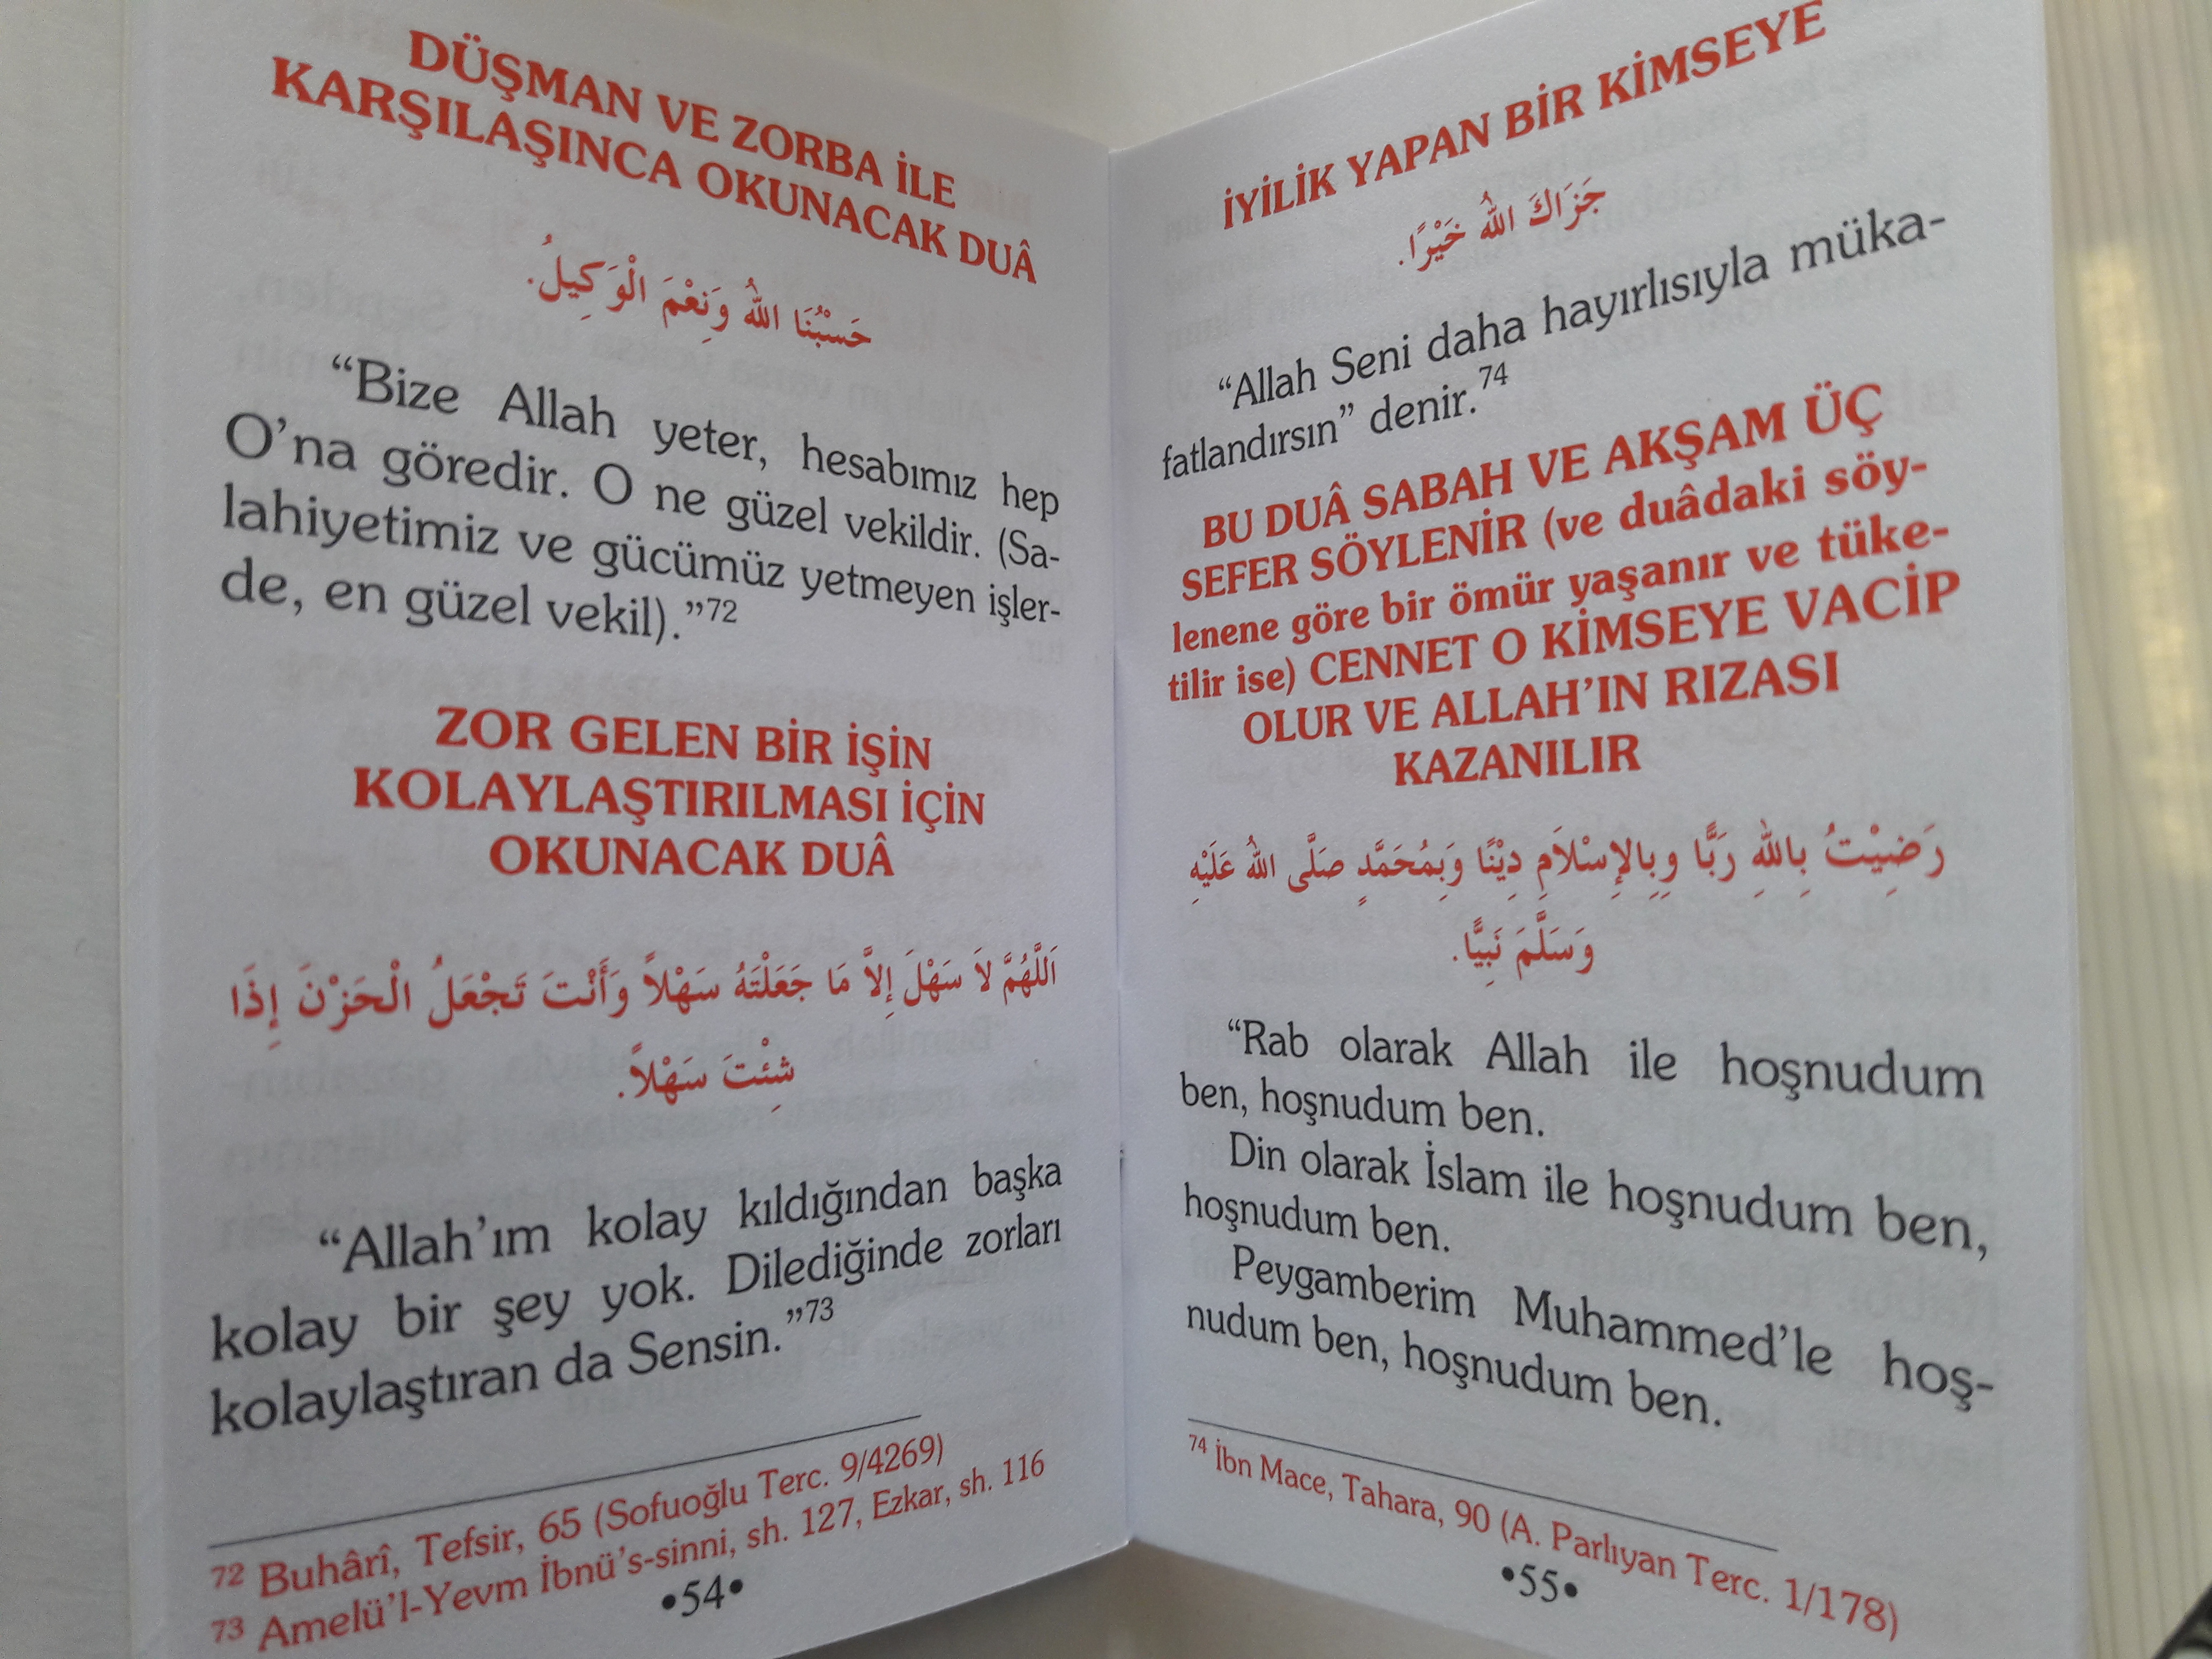 DÜŞMAN VE ZORBA İLE
KARŞILAŞINCA OKUNACAK DUÂ
حَسْبُنَا اللهُ وَنِعْمَ الْوَكِيلُ.
“Bize Allah yeter, hesabımız hep
O’na göredir. O ne güzel vekildir. (Sa-
lahiyetimiz ve gücümüz yetmeyen işler-
de, en güzel vekil).”72
ZOR GELEN BİR İŞİN
KOLAYLAŞTIRILMASI İÇİN
OKUNACAK DUÂ
اَللَّهُمَّ لاَ سَهْلَ إِلاَّ مَا جَعَلْتَهُ سَهْلاً وَأَنْتَ تَجْعَلُ الْحَزْنَ إِذَا
شِئْتَ سَهْلاً.
“Allah’ım kolay kıldığından başka
kolay bir şey yok. Dilediğinde zorları
kolaylaştıran da Sensin.”73
72 Buhârî, Tefsir, 65 (Sofuoğlu Terc. 9/4269)
73 Amelü’l-Yevm İbnü’s-sinni, sh. 127, Ezkar, sh. 116
•54•
İYİLİK YAPAN BİR KİMSEYE
جَزَاكَ اللهُ خَيْرًا.
“Allah Seni daha hayırlısıyla müka-
fatlandırsın” denir.74
BU DUÂ SABAH VE AKŞAM ÜÇ
SEFER SÖYLENİR (ve duâdaki söy-
lenene göre bir ömür yaşanır ve tüke-
tilir ise) CENNET O KİMSEYE VACİP
OLUR VE ALLAH’IN RIZASI
KAZANILIR
رَضِيْتُ بِاللهِ رَبًّا وِبِالإِسْلاَمِ دِيْنًا وَبِمُحَمَّدٍ صَلَّى اللهُ عَلَيْهِ
وَسَلَّمَ نَبِيًّا.
“Rab olarak Allah ile hoşnudum
ben, hoşnudum ben.
Din olarak İslam ile hoşnudum ben,
hoşnudum ben.
Peygamberim Muhammed’le hoş-
nudum ben, hoşnudum ben.
74 İbn Mace, Tahara, 90 (A. Parlıyan Terc. 1/178)
•55•